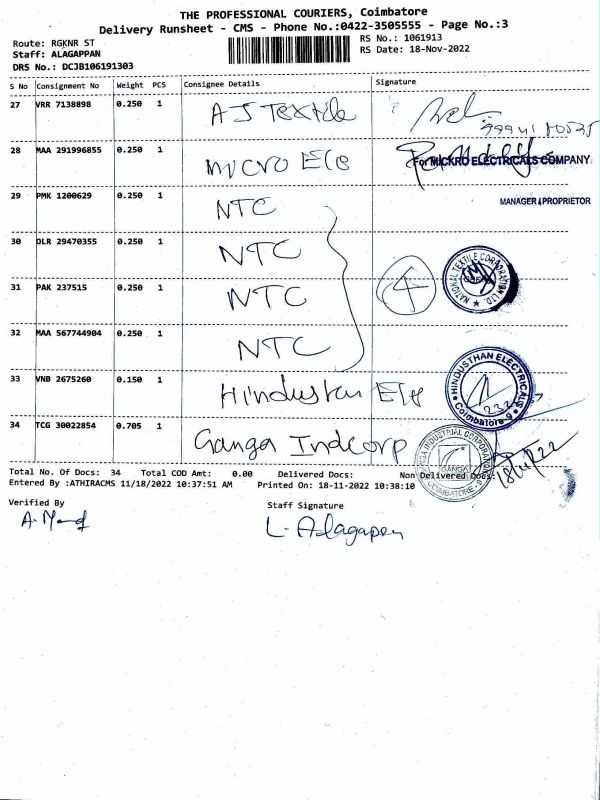 THE PROFESSIONAL COURIERS, Coimbatore
Delivery Runsheet - CMS - Phone No.:0422-3505555 - Page No.:3
Route: RGKNR ST
RS No.: 1061913
Staff: ALAGAPPAN
RS Date: 18-Nov-2022
DRS No.: DCJB106191303
S No Consignment No Weight PCS Consignee Details Signature
27 VRR 7138898 0.250 1 AJ Textile
28 MAA 291996855 0.250 1 Micro Ele For MICKRO ELECTRICALS COMPANY
29 PMK 1200629 0.250 1 NTC MANAGER / PROPRIETOR
30 DLR 29470355 0.250 1 NTC
31 PAK 237515 0.250 1 NTC 4 NATIONAL TEXTILE CORPORATION LTD.
32 MAA 567744904 0.250 1 NTC
33 VNB 2675260 0.150 1 Hindustan Ele HINDUSTHAN ELECTRICALS Coimbatore-9
34 TCG 30022854 0.705 1 Ganga Indcorp GANGA INDUSTRIAL CORPORATION GANGA COIMBATORE-9 18/11/22
Total No. Of Docs: 34 Total COD Amt: 0.00 Delivered Docs: Non Delivered Docs:
Entered By :ATHIRACMS 11/18/2022 10:37:51 AM Printed On: 18-11-2022 10:38:10
Verified By
Staff Signature
L. Alagapen